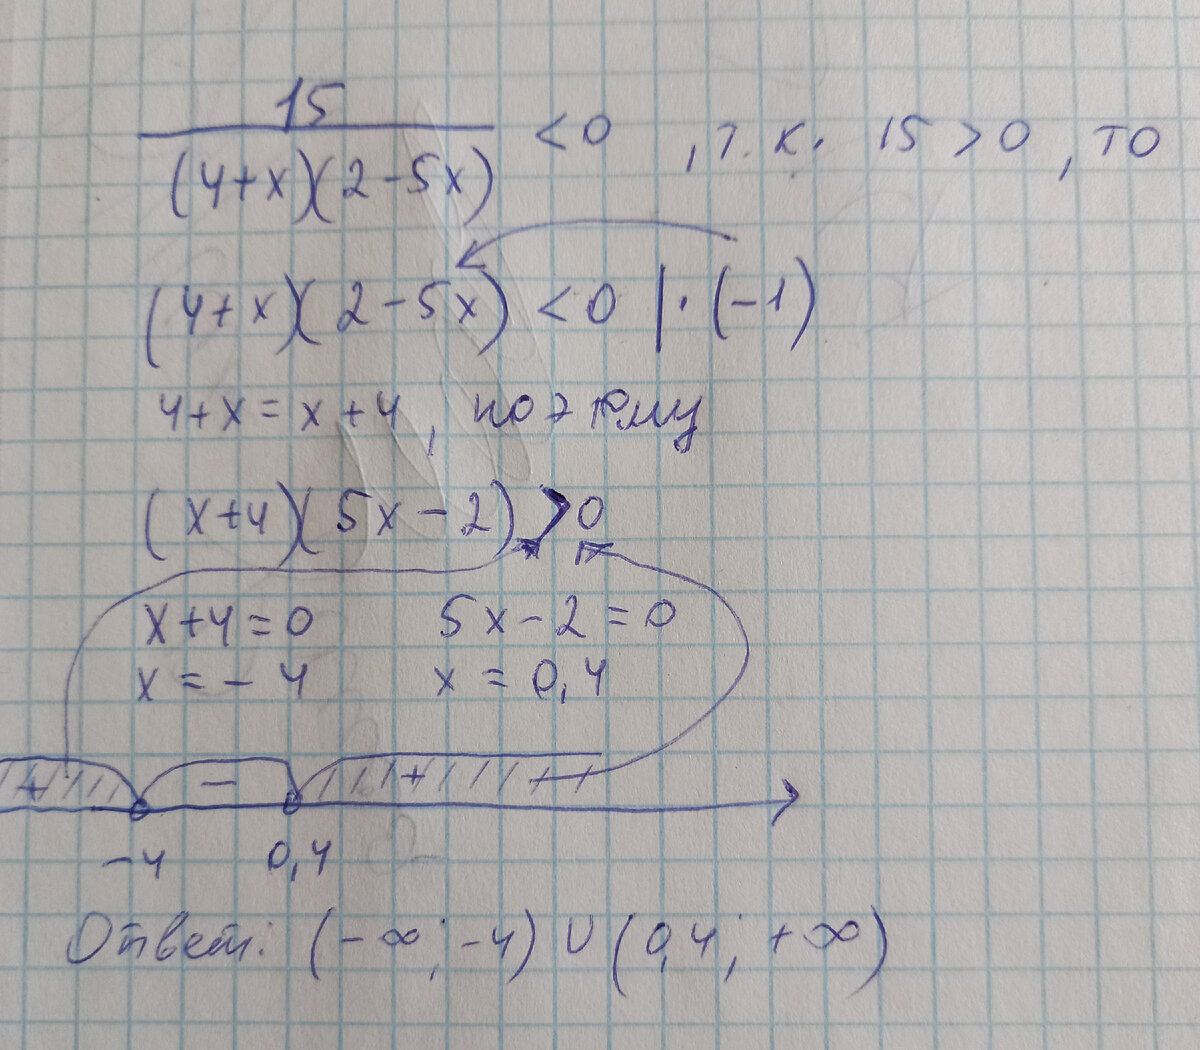 15
(4+x)(2-5x) <0 , т.к. 15>0, то
(4+x)(2-5x) <0 |·(-1)
4+x=x+4, поэтому
(x+4)(5x-2)>0
x+4=0 5x-2=0
x=-4 x=0,4
+ - + +
-4 0,4
Ответ: (-∞;-4)∪(0,4;+∞)